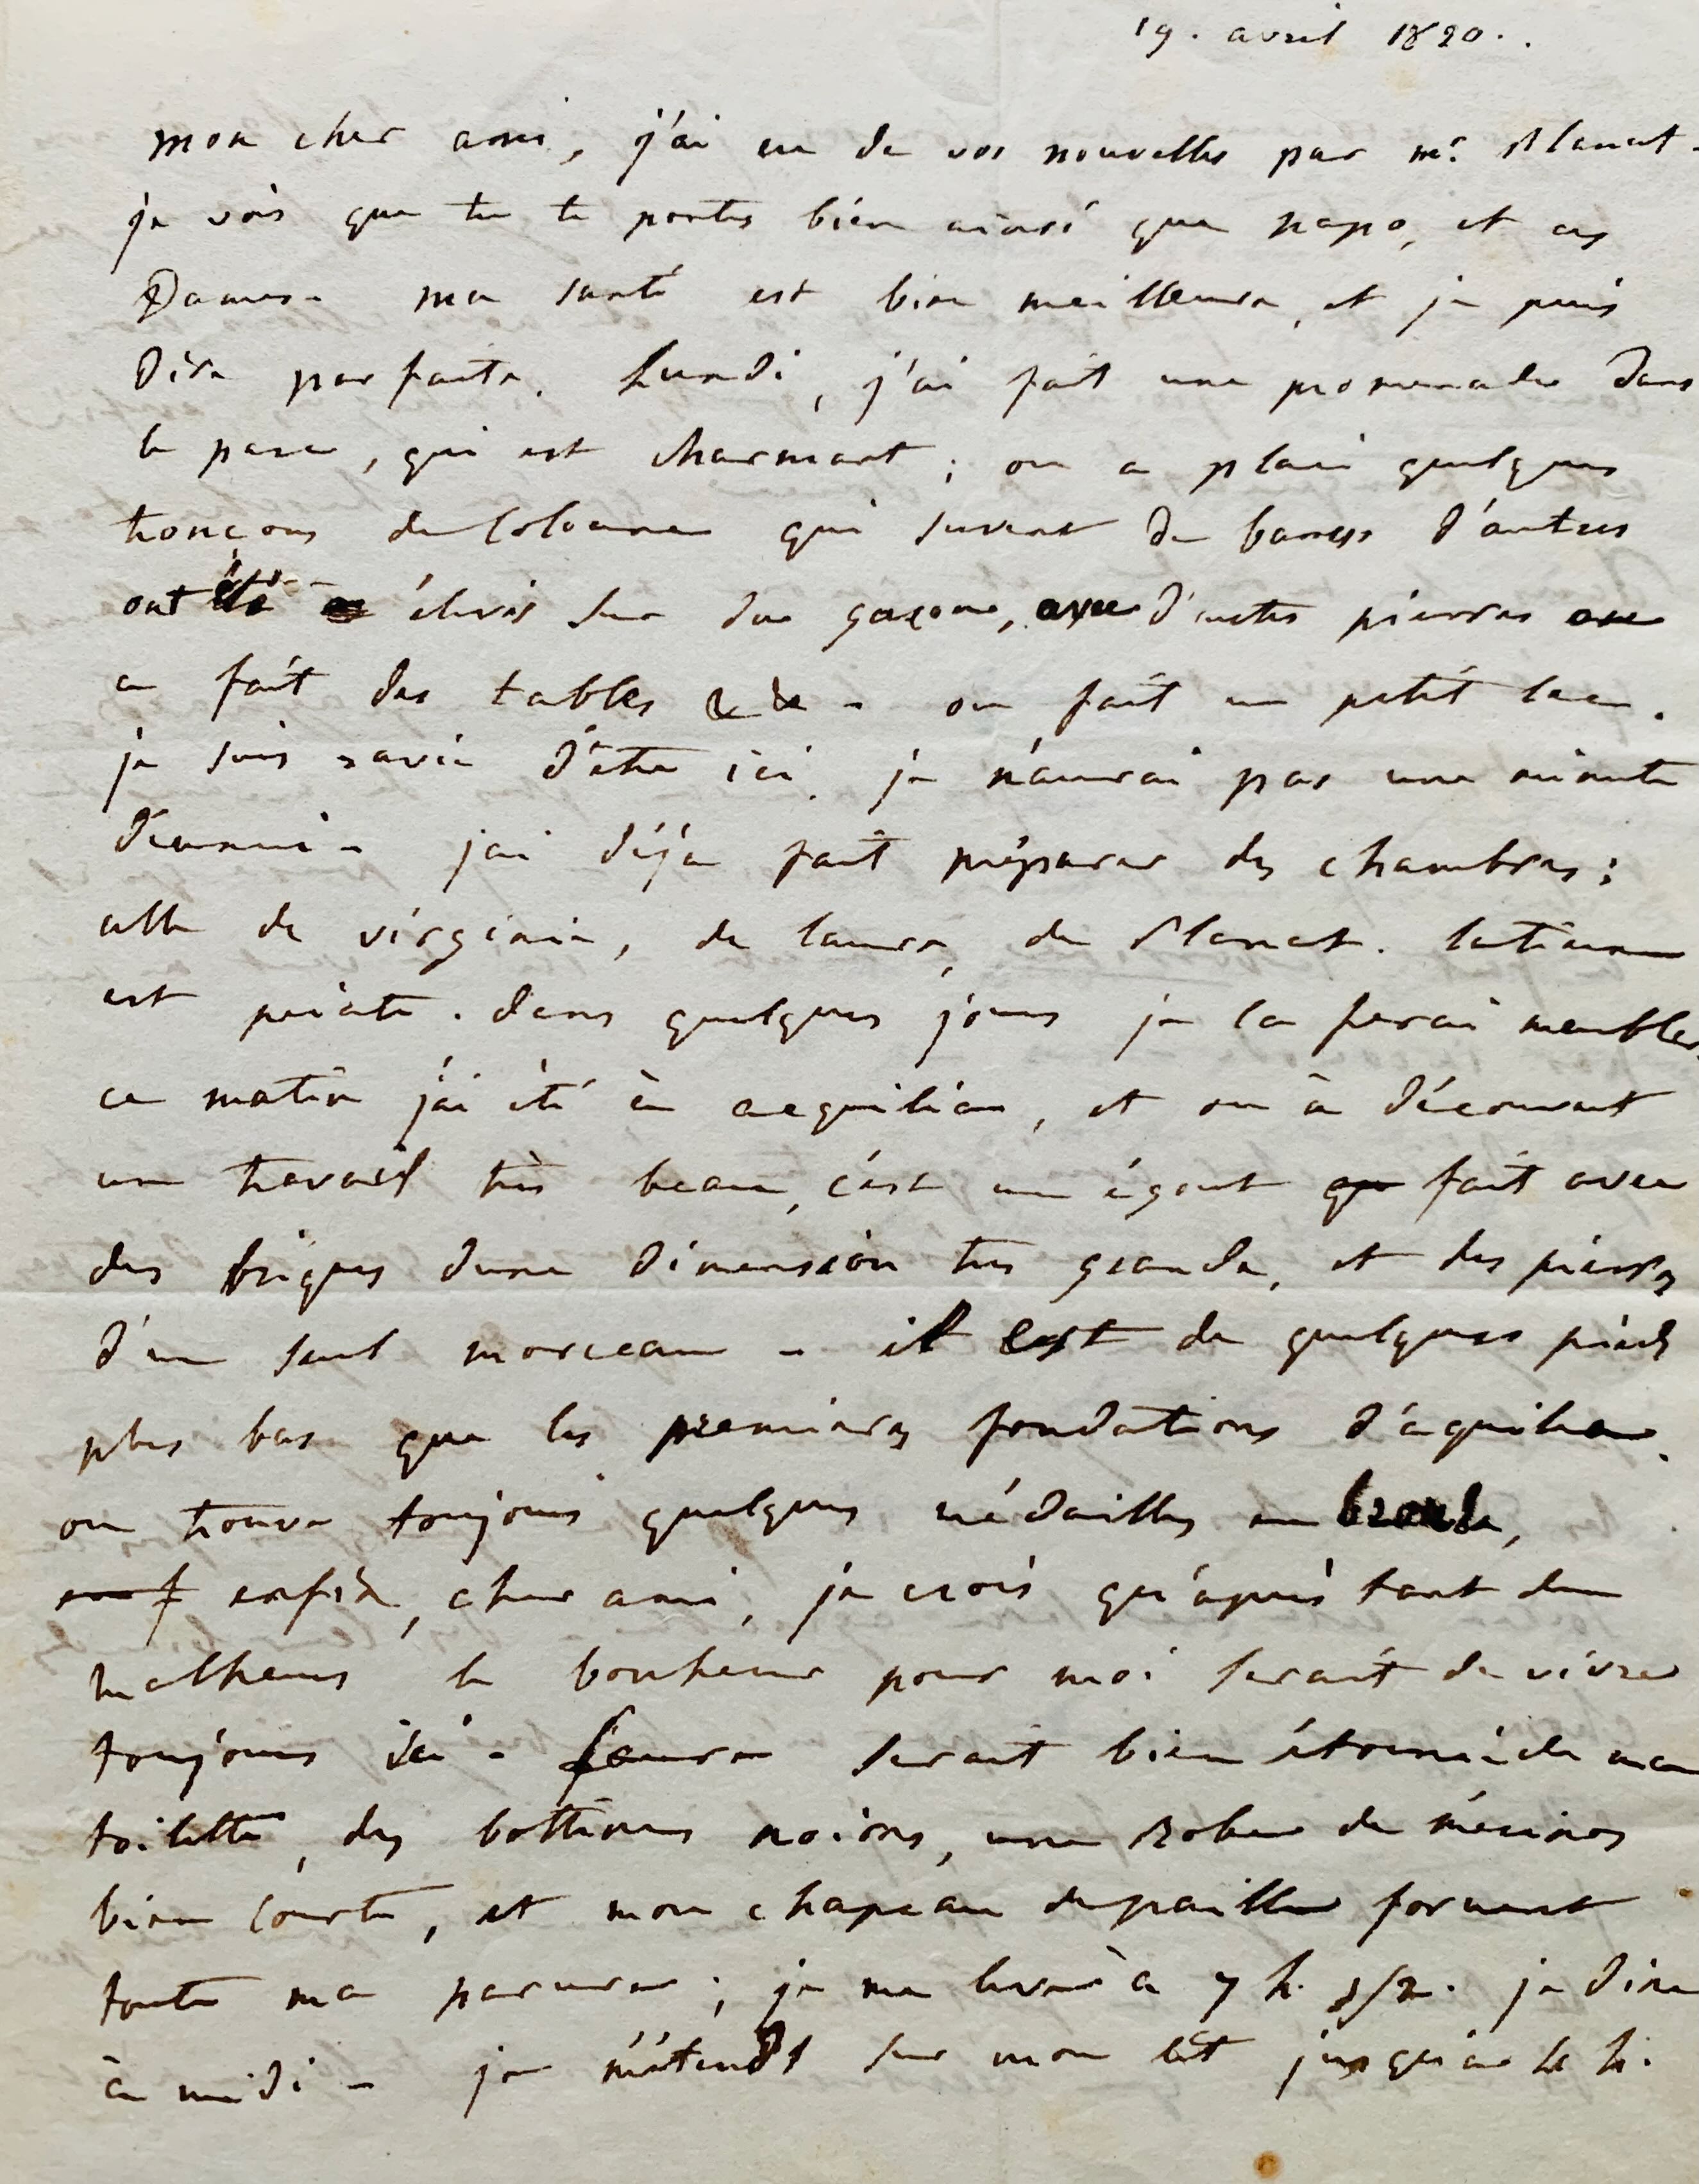 19. avril 1820.
mon cher ami, j'ai eu de vos nouvelles par mr. Planat.
je vois que tu te portes bien ainsi que papo, et ces
Dames. ma santé est bien meilleure, et je puis
Dire parfaite. Lundi, j'ai fait une promenade Dans
le parc, qui est charmant; on a placé quelques
tronçons de Colonne qui servent De bancs D'autres
ont été élevés sur du gazon, avec D'autres pierres on
a fait des tables &c &c - on fait un petit lac.
je suis ravie D'être ici, je n'aurai pas une minute
D'ennui - jai déjà fait préparer des chambres;
celle de virginie, de laure, de Planat. la tienne
est peinte. dans quelques jours je la ferai meubler.
ce matin j'ai été à acquiléan, et on à Découvert
un travail très beau, c'est un égout fait avec
des briques dune Dimension très grande, et des pierres
D'un seul morceau - il est de quelques pieds
plus bas que les premieres fondations D'aquilea.
on trouve toujours quelques médailles en bronze,
enfin, cher ami, je crois qu'après tant de
malheurs le bonheur pour moi serait de vivre
toujours ici - Laure serait bien étonnée de ma
toilette, des bottines noires, une robe de mérinos
bien courte, et mon chapeau de paille forment
toute ma parure; je me leve à 7 h. 1/2. je Dine
à midi - je m'étends sur mon lit jusqu'à h.